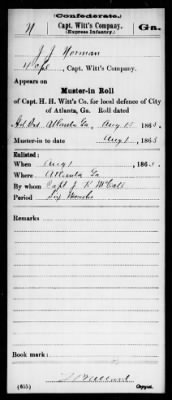 (Confederate.)
N Capt. Witt's Company. Ga.
(Express Infantry.)
J. J. Norman
Capt. Witt's Company.
Appears on
Muster-in Roll
of Capt. H. H. Witt's Co. for local defence of City
of Atlanta, Ga. Roll dated
Atlanta Ga, Aug 186
Muster-in to date Aug 1, 186
Enlisted:
When Aug 1, 186
Where Atlanta Ga
By whom Capt J.
Period Six Months
Remarks
Book mark:
(655) Copyist.